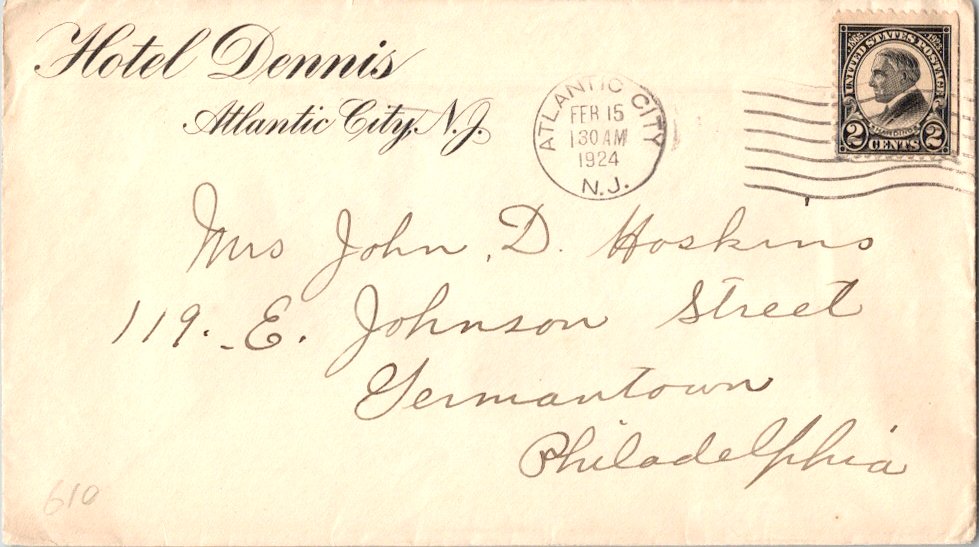 Hotel Dennis
Atlantic City, N.J.
ATLANTIC CITY
FEB 15
130 AM
1924
N.J.
1865 1923
UNITED STATES POSTAGE
HARDING
2 CENTS 2
Mrs John, D. Hoskins
119. E. Johnson Street
Germantown
Philadelphia
610